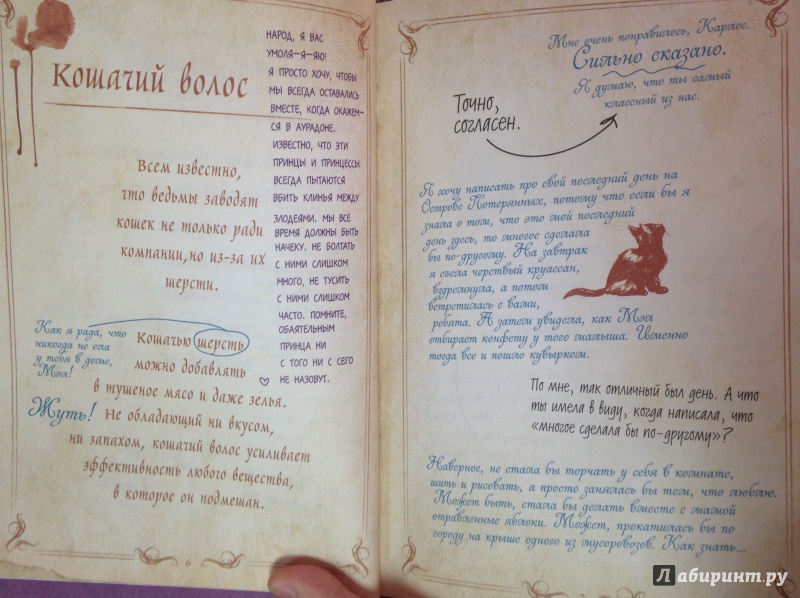 Кошачий волос
Всем известно,
что ведьмы заводят
кошек не только ради
компании, но из-за их
шерсти.
Как я рада, что
никогда не ела
у тебя в доме,
Мэл!
Кошачью шерсть
можно добавлять
в тушеное мясо и даже зелья.
Жуть!
Не обладающий ни вкусом,
ни запахом, кошачий волос усиливает
эффективность любого вещества,
в которое он подмешан.
НАРОД, Я ВАС
УМОЛЯ-Я-ЯЮ!
Я ПРОСТО ХОЧУ, ЧТОБЫ
МЫ ВСЕГДА ОСТАВАЛИСЬ
ВМЕСТЕ, КОГДА ОКАЖЕМ-
СЯ В АУРАДОНЕ.
ИЗВЕСТНО, ЧТО ЭТИ
ПРИНЦЫ И ПРИНЦЕССЫ
ВСЕГДА ПЫТАЮТСЯ
ВБИТЬ КЛИНЬЯ МЕЖДУ
ЗЛОДЕЯМИ. МЫ ВСЕ
ВРЕМЯ ДОЛЖНЫ БЫТЬ
НАЧЕКУ. НЕ БОЛТАТЬ
С НИМИ СЛИШКОМ
МНОГО, НЕ ТУСИТЬ
С НИМИ СЛИШКОМ
ЧАСТО. ПОМНИТЕ,
ОБАЯТЕЛЬНЫМ
ПРИНЦА НИ
С ТОГО НИ С СЕГО
НЕ НАЗОВУТ.
6
Мне очень понравилось, Карлос.
Сильно сказано.
Я думаю, что ты самый
классный из нас.
Точно,
согласен.
Я хочу написать про свой последний день на
Острове Потерянных, потому что если бы я
знала о том, что это мой последний
день здесь, то многое сделала
бы по-другому. На завтрак
я съела черствый круассан,
вздремнула, а потом
встретилась с вами,
ребята. А затем увидела, как Мэл
отбирает конфету у того малыша. Именно
тогда все и пошло кувырком.
По мне, так отличный был день. А что
ты имела в виду, когда написала, что
«многое сделала бы по-другому»?
Наверное, не стала бы торчать у себя в комнате,
шить и рисовать, а просто занялась бы тем, что люблю.
Может быть, стала бы делать вместе с мамой
отравленные яблоки. Может, прокатилась бы по
городу на крыше одного из мусоровозов. Как знать...
Лабиринт.ру